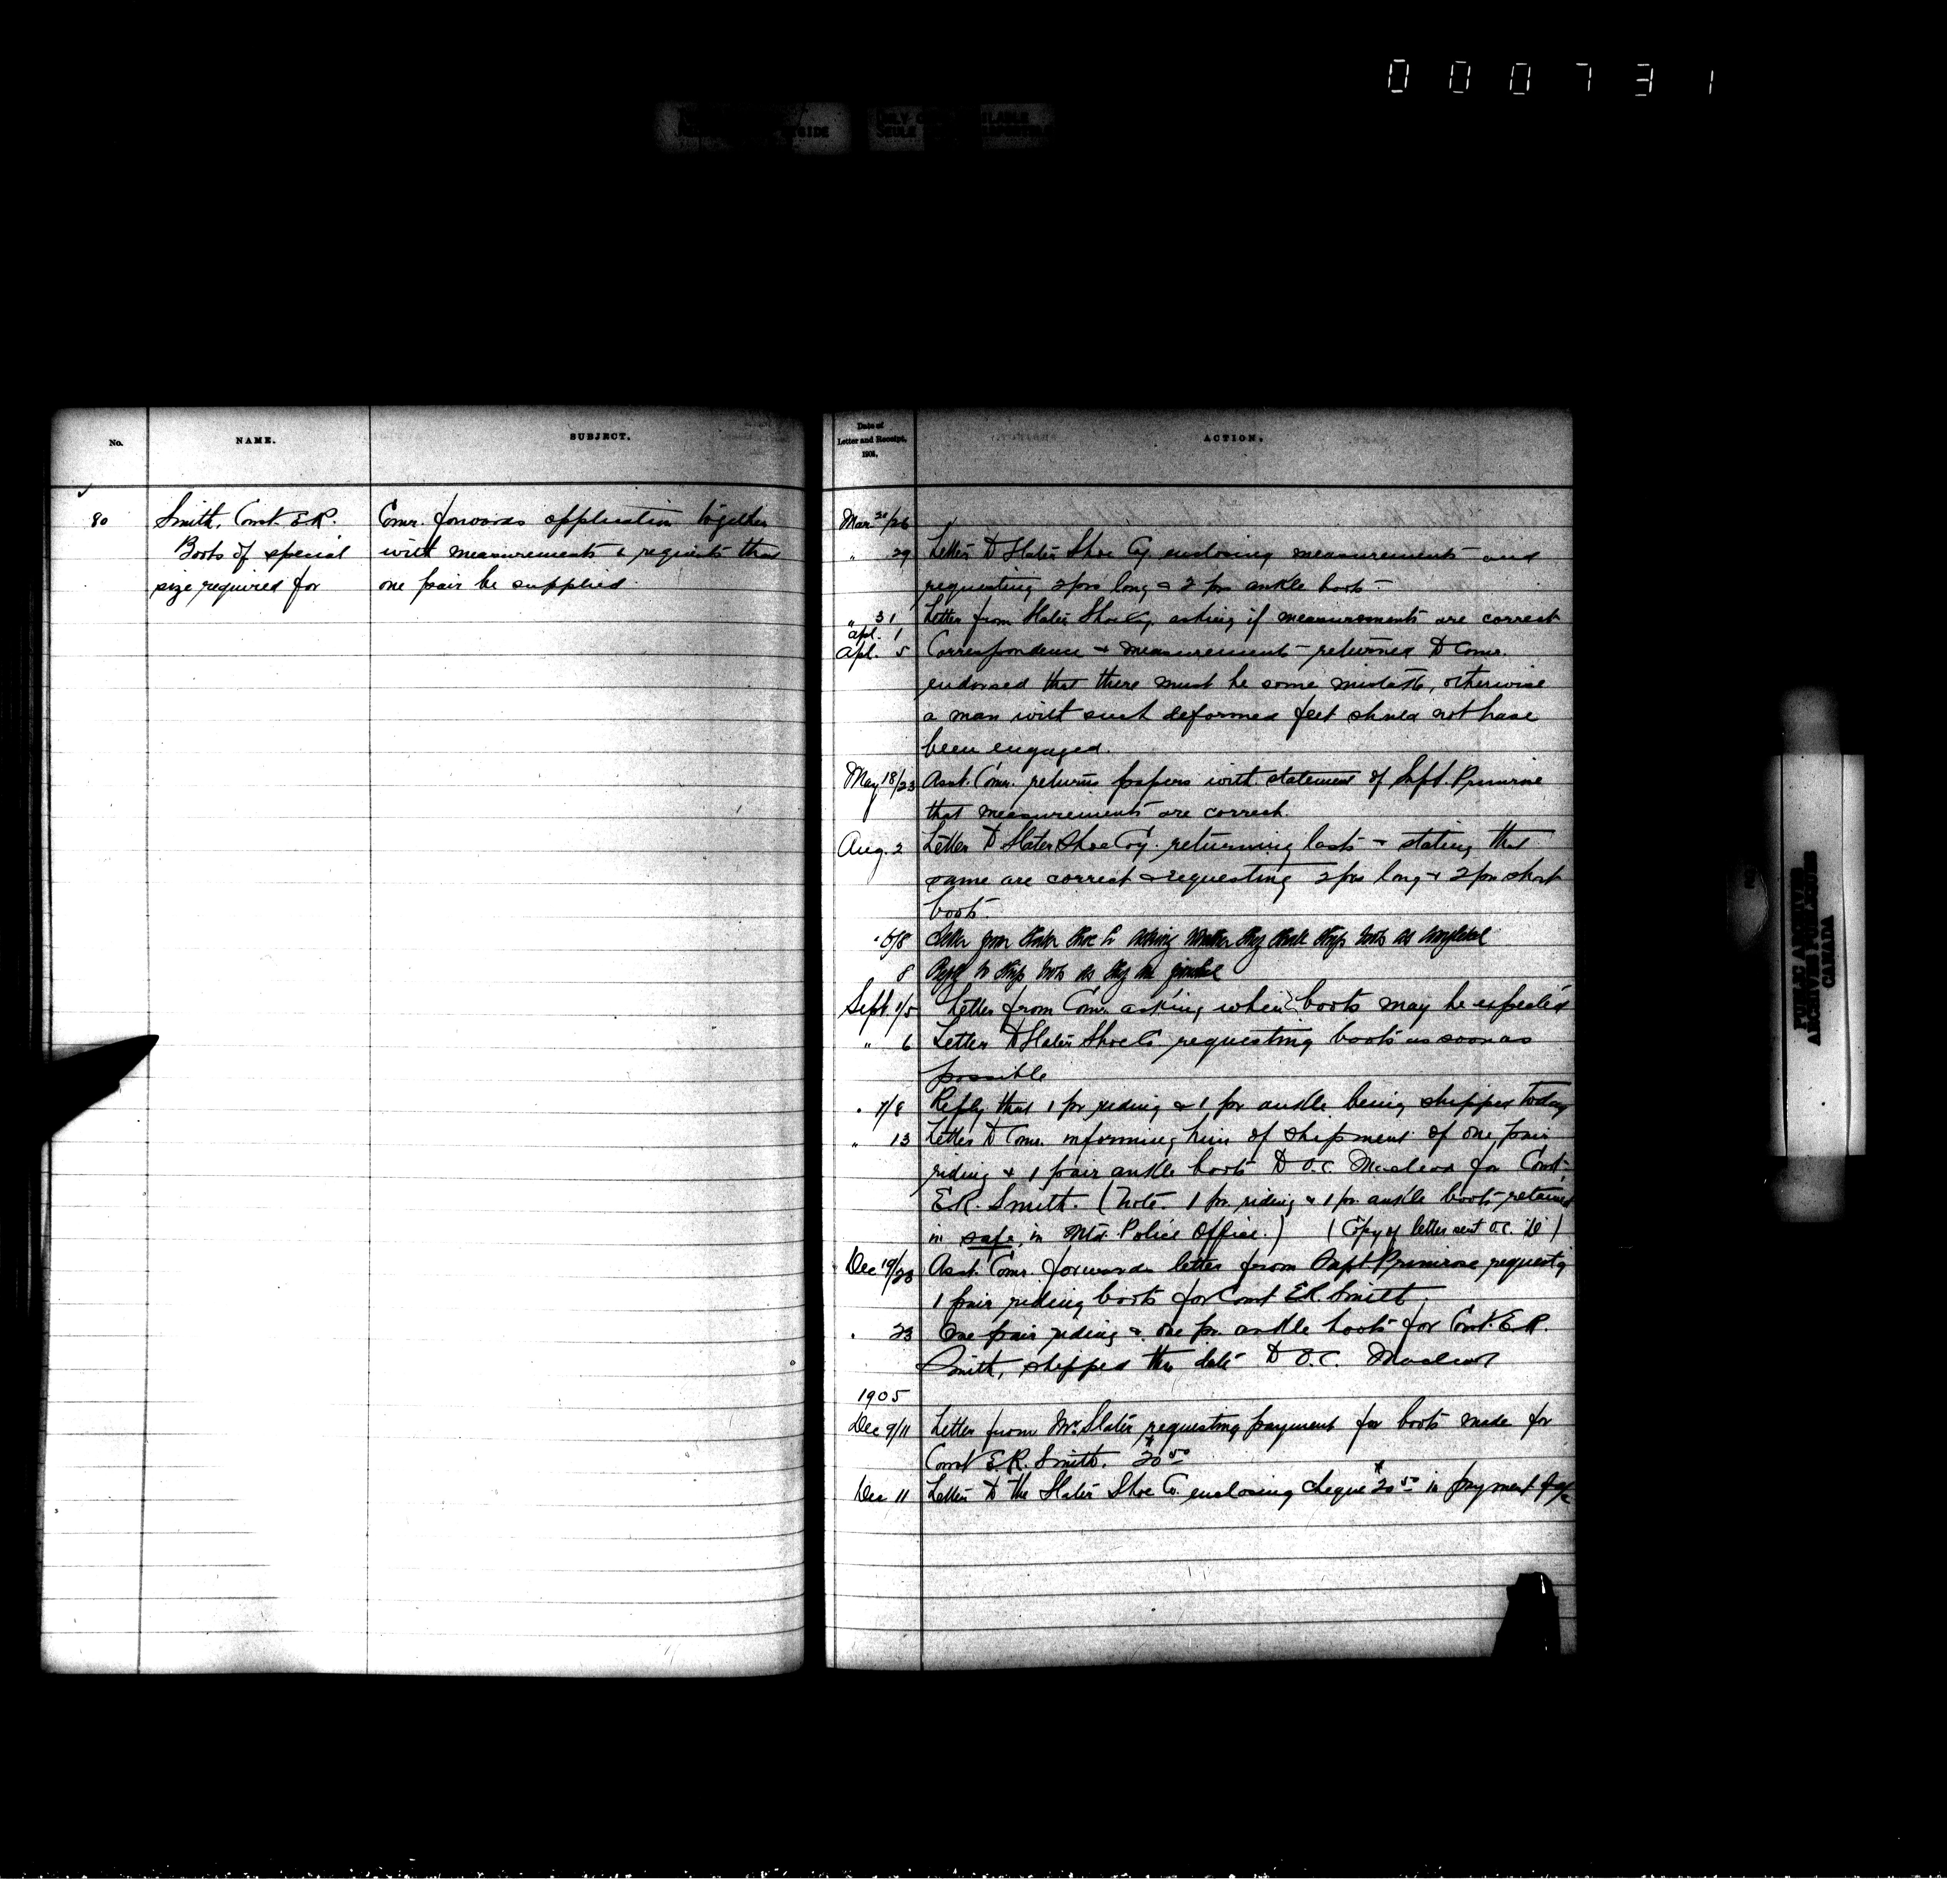 000731
No.
NAME.
SUBJECT.
80
Smith, Const. E.R.
Boots of special
size required for
Comr. forwards application together
with measurements & requests that
one pair be supplied.
Date of
Letter and Receipt,
ACTION.
Mar /26
" 29 Letter to Slater Shoe Coy. enclosing measurements and
requesting 2 prs long & 2 prs ankle boots.
" 31
Apl. 1 Letter from Slater Shoe Coy. asking if measurements are correct
Apl. 5 Correspondence & measurements returned to Comr.
endorsed that there must be some mistake, otherwise
a man with such deformed feet should not have
been engaged.
May 18/23 Asst. Comr. returns papers with statement of Supt. Primrose
that measurements are correct.
Aug. 2 Letter to Slater Shoe Coy. returning lasts & stating that
same are correct & requesting 2 prs long & 2 prs short
boots.
" 5/8 Letter from Slater Shoe Co asking whether they should ship boots as completed
8 Reply to ship boots as they are finished
Sept 1/5 Letter from Comr. asking when boots may be expected
" 6 Letter to Slater Shoe Co requesting boots as soon as
possible
" 7/8 Reply that 1 pr riding & 1 pr ankle being shipped today
" 13 Letter to Comr. informing him of shipment of one pair
riding & 1 pair ankle boots to O.C. Macleod for Const.
E.R. Smith. (Note. 1 pr. riding & 1 pr. ankle boots retained
in safe, in Mtd. Police Office.) (Copy of letter sent O.C. "D")
Dec 19/23 Asst. Comr. forwards letter from Supt Primrose requestg
1 pair riding boots for Const E.R. Smith.
" 23 One pair riding & one pr. ankle boots for Const. E.R.
Smith, shipped this date to O.C. Macleod
1905
Dec 9/11 Letter from Mr. Slater requesting payment for boots made for
Const E.R. Smith. $20.50
Dec 11 Letter to the Slater Shoe Co. enclosing cheque $20.50 in payment of a/c
PUBLIC ARCHIVES
ARCHIVES PUBLIQUES
CANADA